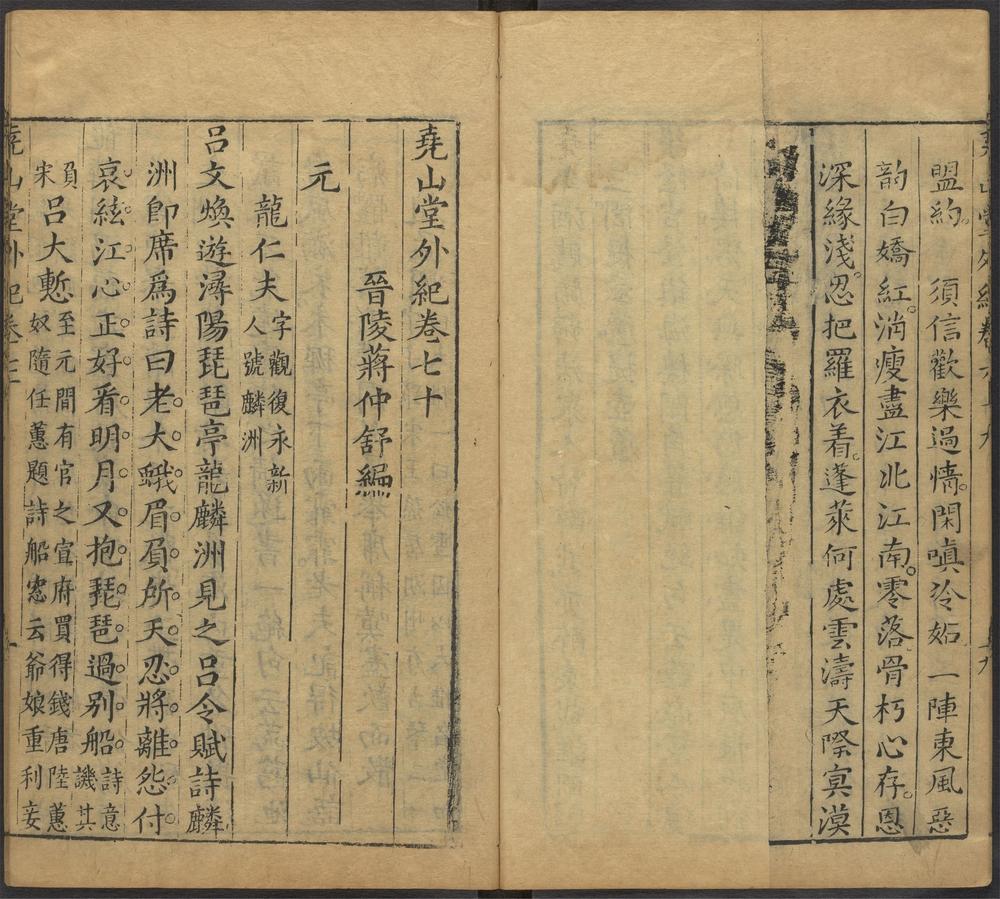 盟約。須信歡樂過情。閑嗔冷妬一陣東風惡
韵白嬌紅。消瘦盡江北江南。零落骨朽心存。恩
深緣淺。忍把羅衣着。蓬萊何處雲濤天際㝠漠
堯山堂外紀卷七十
晉陵蔣仲舒編
元
龍仁夫字觀復永新人號麟洲
呂文煥遊潯陽琵琶亭龍麟洲見之呂令賦詩麟
洲即席爲詩曰老大蛾眉負所天忍將離怨付
哀絃江心正好看明月又抱琵琶過别船詩意譏其
負宋呂大慙至元間有官之宜府買得錢唐陸蕙奴隨任蕙題詩船窓云爺娘重利妾
堯山堂外紀卷七十 一